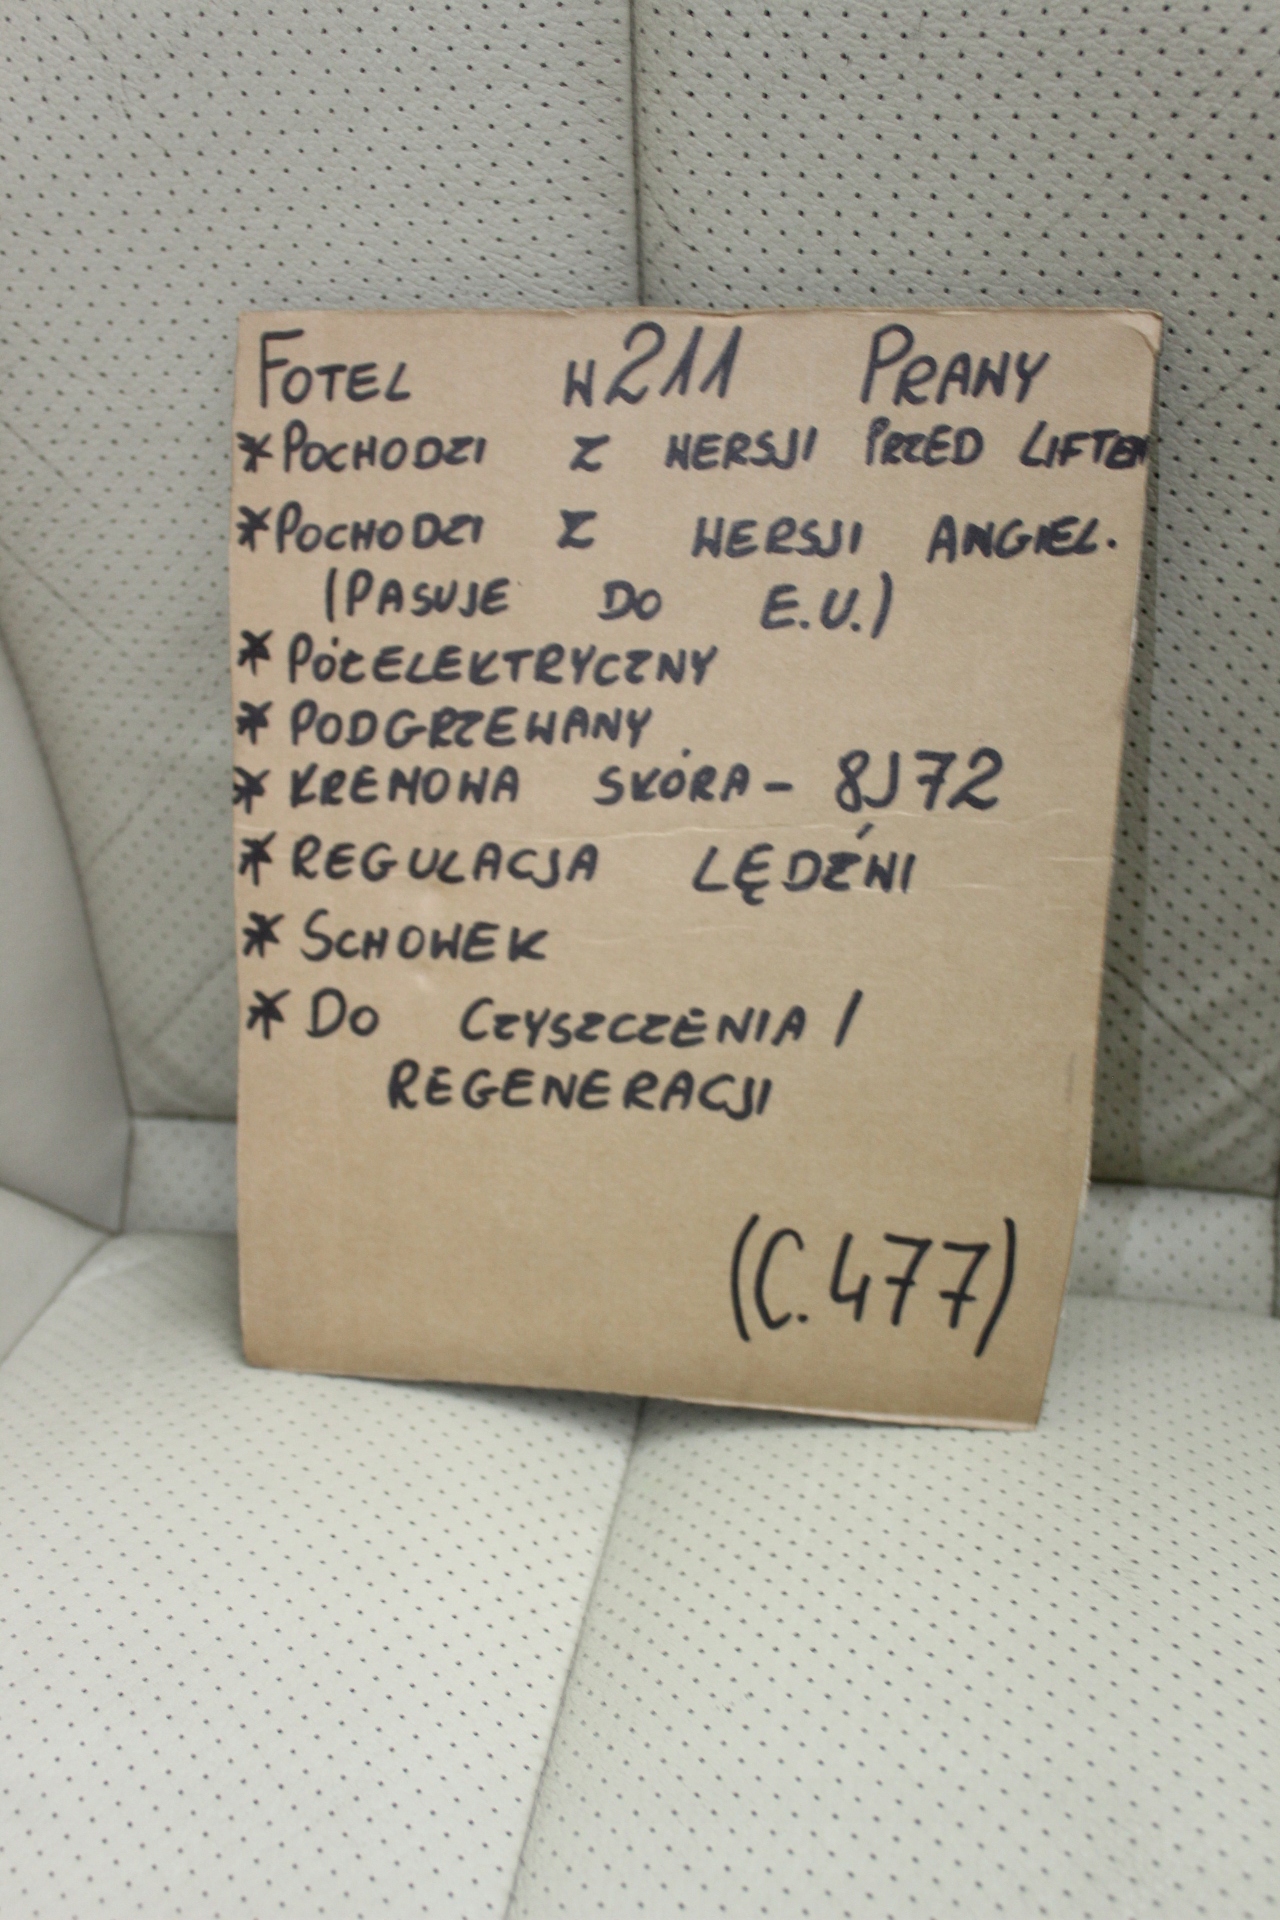 FOTEL W211 PRAWY
* POCHODZI Z WERSJI PRZED LIFTEM
* POCHODZI Z WERSJI ANGIEL.
(PASUJE DO E.U.)
* PÓŁELEKTRYCZNY
* PODGRZEWANY
* KREMOWA SKÓRA - 8J72
* REGULACJA LĘDŹWI
* SCHOWEK
* DO CZYSZCZENIA /
REGENERACJI
(C.477)